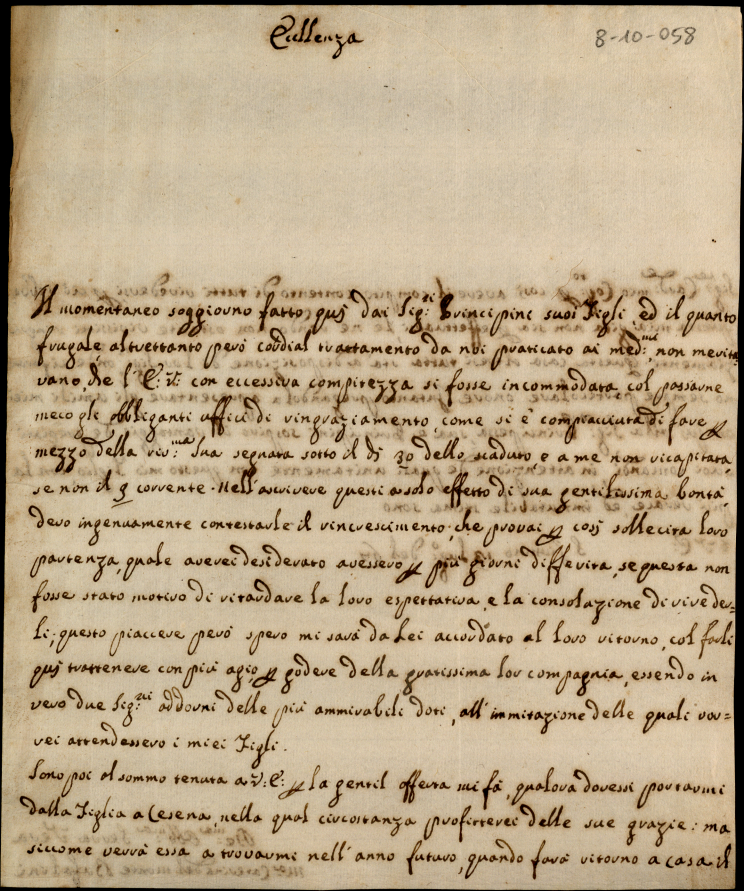 Eccellenza
8-10-058
Il momentaneo soggiorno fatto quì dai Sig.ri Principini suoi Figli, ed il quanto
frugale, altrettanto però cordial trattamento da noi praticato ai med.mi, non merita-
vano, che l'E: V: con eccessiva compitezza si fosse incommodata, col passarne
meco gli obbliganti uffici di ringraziamento, come si è compiacciuta di fare p
mezzo della riv.ma Sua segnata sotto il dì 30 dello scaduto, e a me non ricapitata,
se non il 9 corrente. Nell'ascrivere questi a solo effetto di sua gentilissima bontà,
devo ingenuamente contestarle il rincrescimento, che provai p così sollecita loro
partenza, quale averei desiderato avessero p più giorni differita, se questa non
fosse stato motivo di ritardare la loro espettativa, e la consolazione di riveder-
li; questo piaccere però spero mi sarà da Lei accordato al loro ritorno, col farli
quì trattenere con più agio, p godere della gratissima lor compagnia, essendo in
vero due Sig.ri addorni delle più ammirabili doti, all'immitazione delle quali vor-
rei attendessero i miei Figli.
Sono poi al sommo tenuta a V: E: p la gentil offerta mi fà, qualora dovessi portarmi
dalla Figlia a Cesena, nella qual circostanza profitterei delle sue grazie: ma
siccome verrà essa a trovarmi nell'anno futuro, quando farà ritorno a casa il